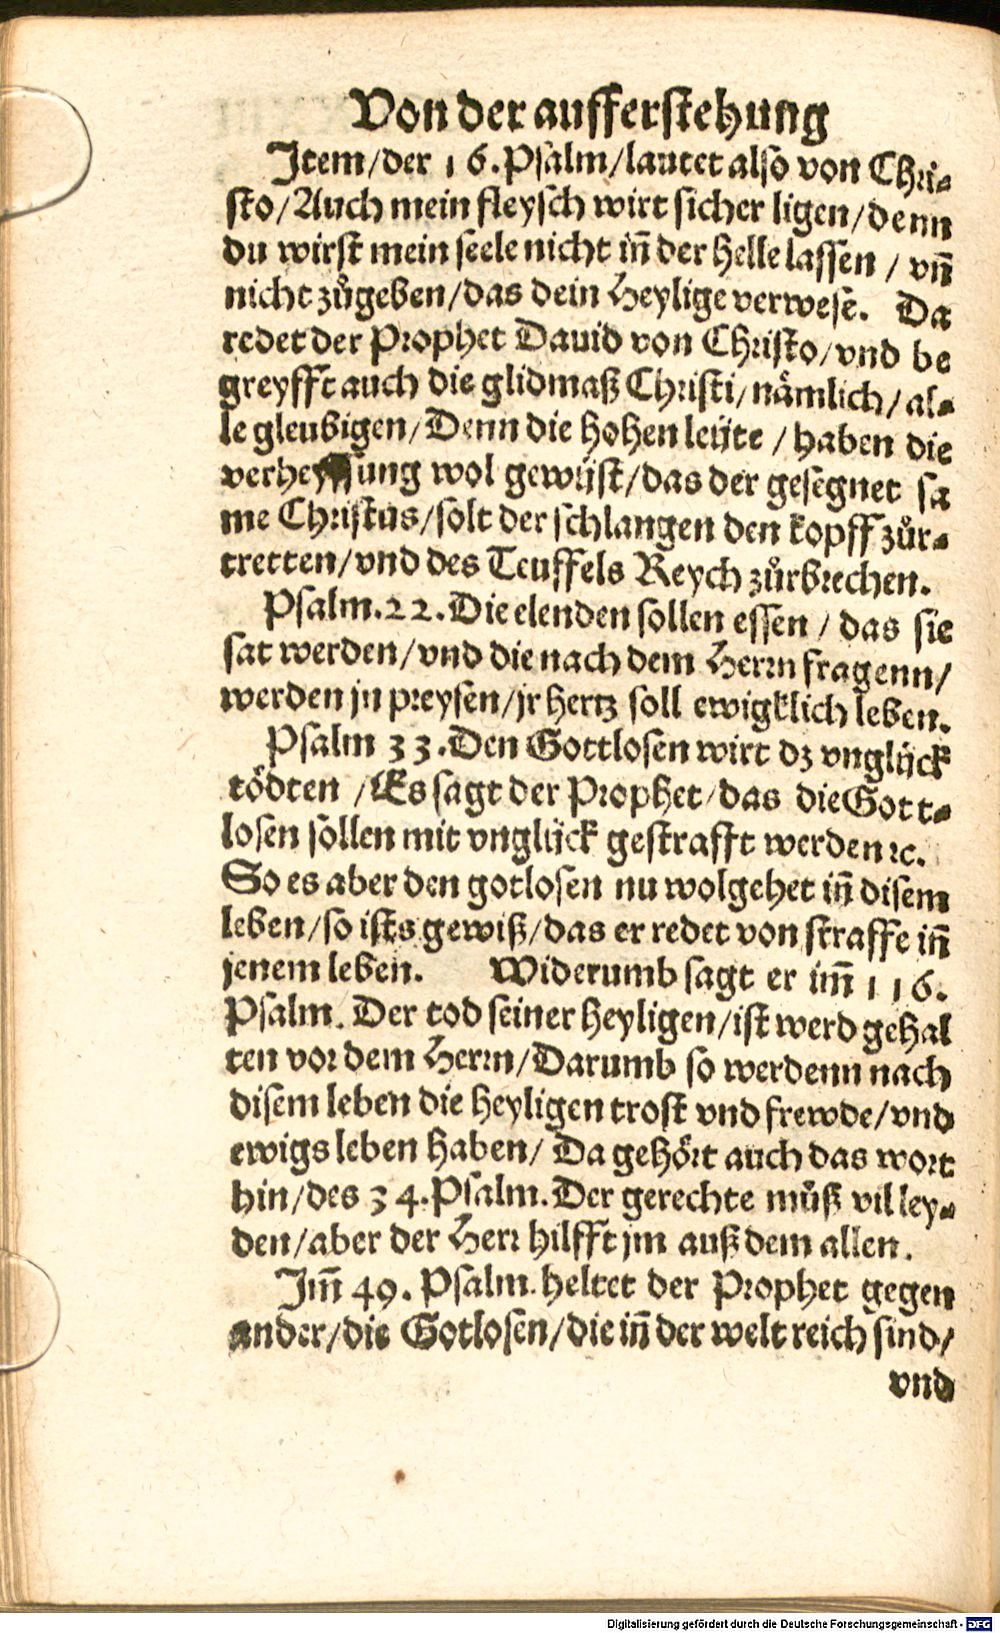 Von der aufferstehung
Item/der 16.Psalm/lautet also von Chri⸗
sto/Auch mein fleysch wirt sicher ligen/denn
du wirst mein seele nicht in̄ der Helle lassen / vn̄
nicht zůgeben/das dein Heylige verwese. Da
redet der Prophet Dauid von Christo/vnd be
greyfft auch die glidmaß Christi/nämlich/al⸗
le gleubigen/Denn die hohen leüte / haben die
verheyssung wol gewüst/das der gesegnet sa
me Christus/solt der schlangen den kopff zůr⸗
tretten/vnd des Teuffels Reych zůrbrechen.
Psalm.22.Die elenden sollen essen / das sie
sat werden/vnd die nach dem Herrn fragenn/
werden jn preysen/jr hertz soll ewigklich leben.
Psalm 33.Den Gottlosen wirt dz vnglück
tödten /Es sagt der Prophet/das die Gott⸗
losen sollen mit vnglück gestrafft werden ꝛc.
So es aber den gotlosen nu wolgehet in̄ disem
leben/so ists gewiß/das er redet von straffe in̄
jenem leben. Widerumb sagt er im̄ 116.
Psalm. Der tod seiner heyligen/ist werd gehal
ten vor dem Herrn/Darumb so werdenn nach
disem leben die heyligen trost vnd frewde/vnd
ewigs leben haben/ Da gehört auch das wort
hin/des 34.Psalm.Der gerechte můß vil ley⸗
den/aber der Herr hilfft jm auß dem allen.
Im̄ 49. Psalm. heltet der Prophet gegen
ander/die Gotlosen/die in̄ der welt reich sind/
vnd
Digitalisierung gefördert durch die Deutsche Forschungsgemeinschaft - DFG